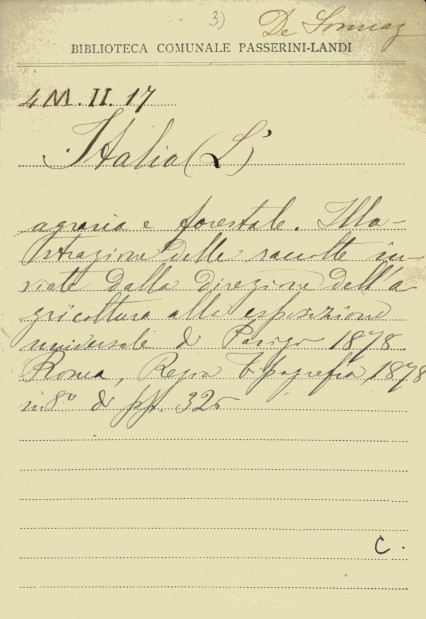 3) De Sonnaz
BIBLIOTECA COMUNALE PASSERINI-LANDI
4 M. II. 17
Italia (L')
agraria e forestale. Illu-
strazione delle raccolte in-
viate dalla direzione dell'a
gricoltura alla esposizione
universale di Parigi 1878
Roma, Regia tipografia, 1878
in 8° di pp. 325
C.